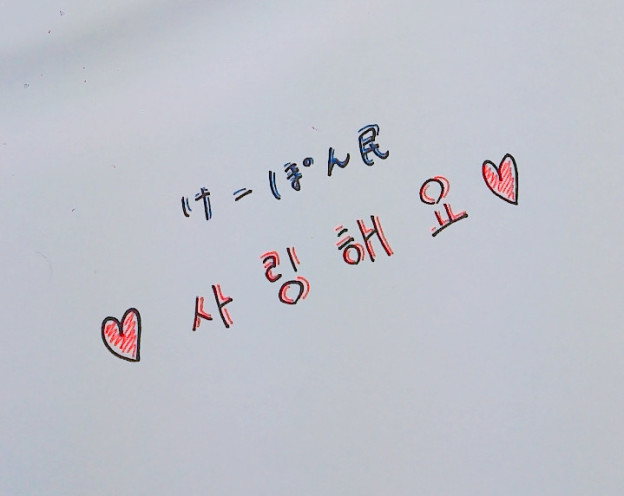 けーぽん民
사링해요